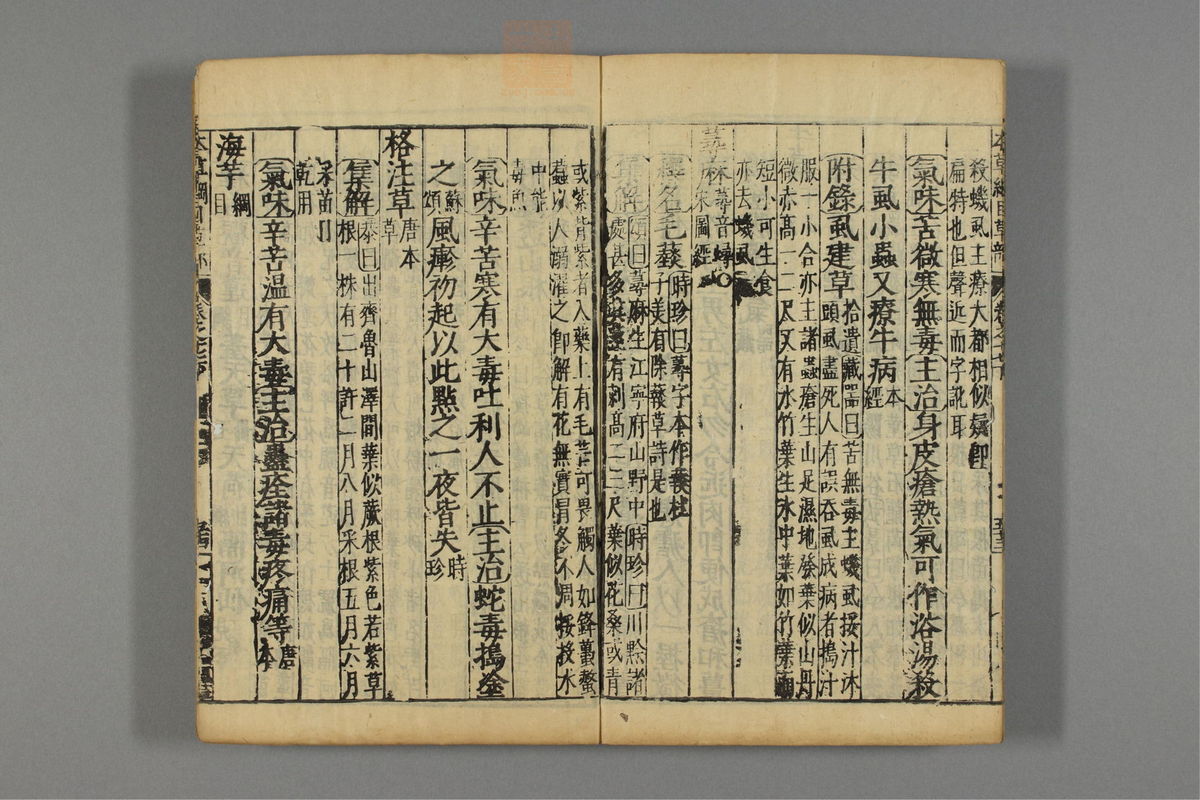 殺蟣虱主療大都相似疑即
扁特也但聲近而字訛耳
氣味苦微寒無毒主治身皮瘡熱氣可作浴湯殺
牛虱小蟲又療牛病本經
附錄虱建草拾遺藏器曰苦無毒主蟣虱挼汁沐
頭虱盡死人有誤吞虱成病者搗汁
服一小合亦主諸蟲瘡生山足濕地發葉似山丹
微赤高一二尺又有水竹葉生水中葉如竹葉而
短小可生食
亦去蟣虱
蕁麻蕁音
宋圖經
釋名毛藜時珍曰蕁字本作杜
子美有除草詩是也
集解頌曰蕁麻生江寧府山野中時珍曰川黔諸
處甚多其莖有刺高二三尺葉似花桑或青
或紫背紫者入藥上有毛芒可畏觸人如蜂蠆螫
蠚以人溺濯之即解有花無實冒冬不凋挼投水
中能
毒魚
氣味辛苦寒有大毒吐利人不止主治蛇毒搗塗
之蘇頌風㾦初起以此點之一夜皆失時珍
格注草唐本
草
集解恭曰出齊魯山澤間葉似蕨根紫色若紫草
根一株有二十許二月八月采根五月六月
采苗日
乾用
氣味辛苦溫有大毒主治蠱疰諸毒疼痛等唐本
海芋綱目